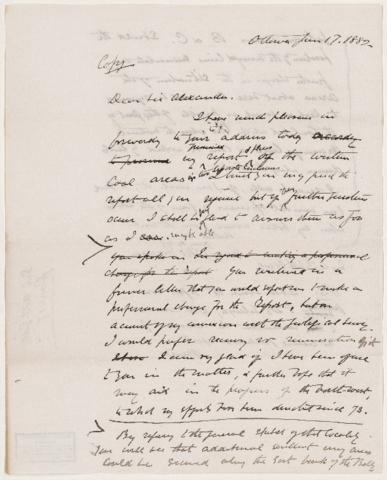 Ottawa, Jan 17. 1882
Copy
Dear Sir Alexander.
I have much pleasure in
forwarding to your address today
to promised my report of the
Coal areas in the I trust you may find the
report all you require but if any further questions
occur I shall be glad to answer them as far
as I may be able
You mention in a
former letter that you would expect me to make a
professional charge for the Report, but on
account of my connexion with the Geological Survey
I would prefer receiving no remuneration for it
I am very glad if I have been of use
to you in the matter, & further hope that it
may aid in the progress of the North-west,
to which my efforts have been devoted since 73.
By referring to the general sketch of the locality
You will see that additional mining areas
could be secured along the East bank of the Belly